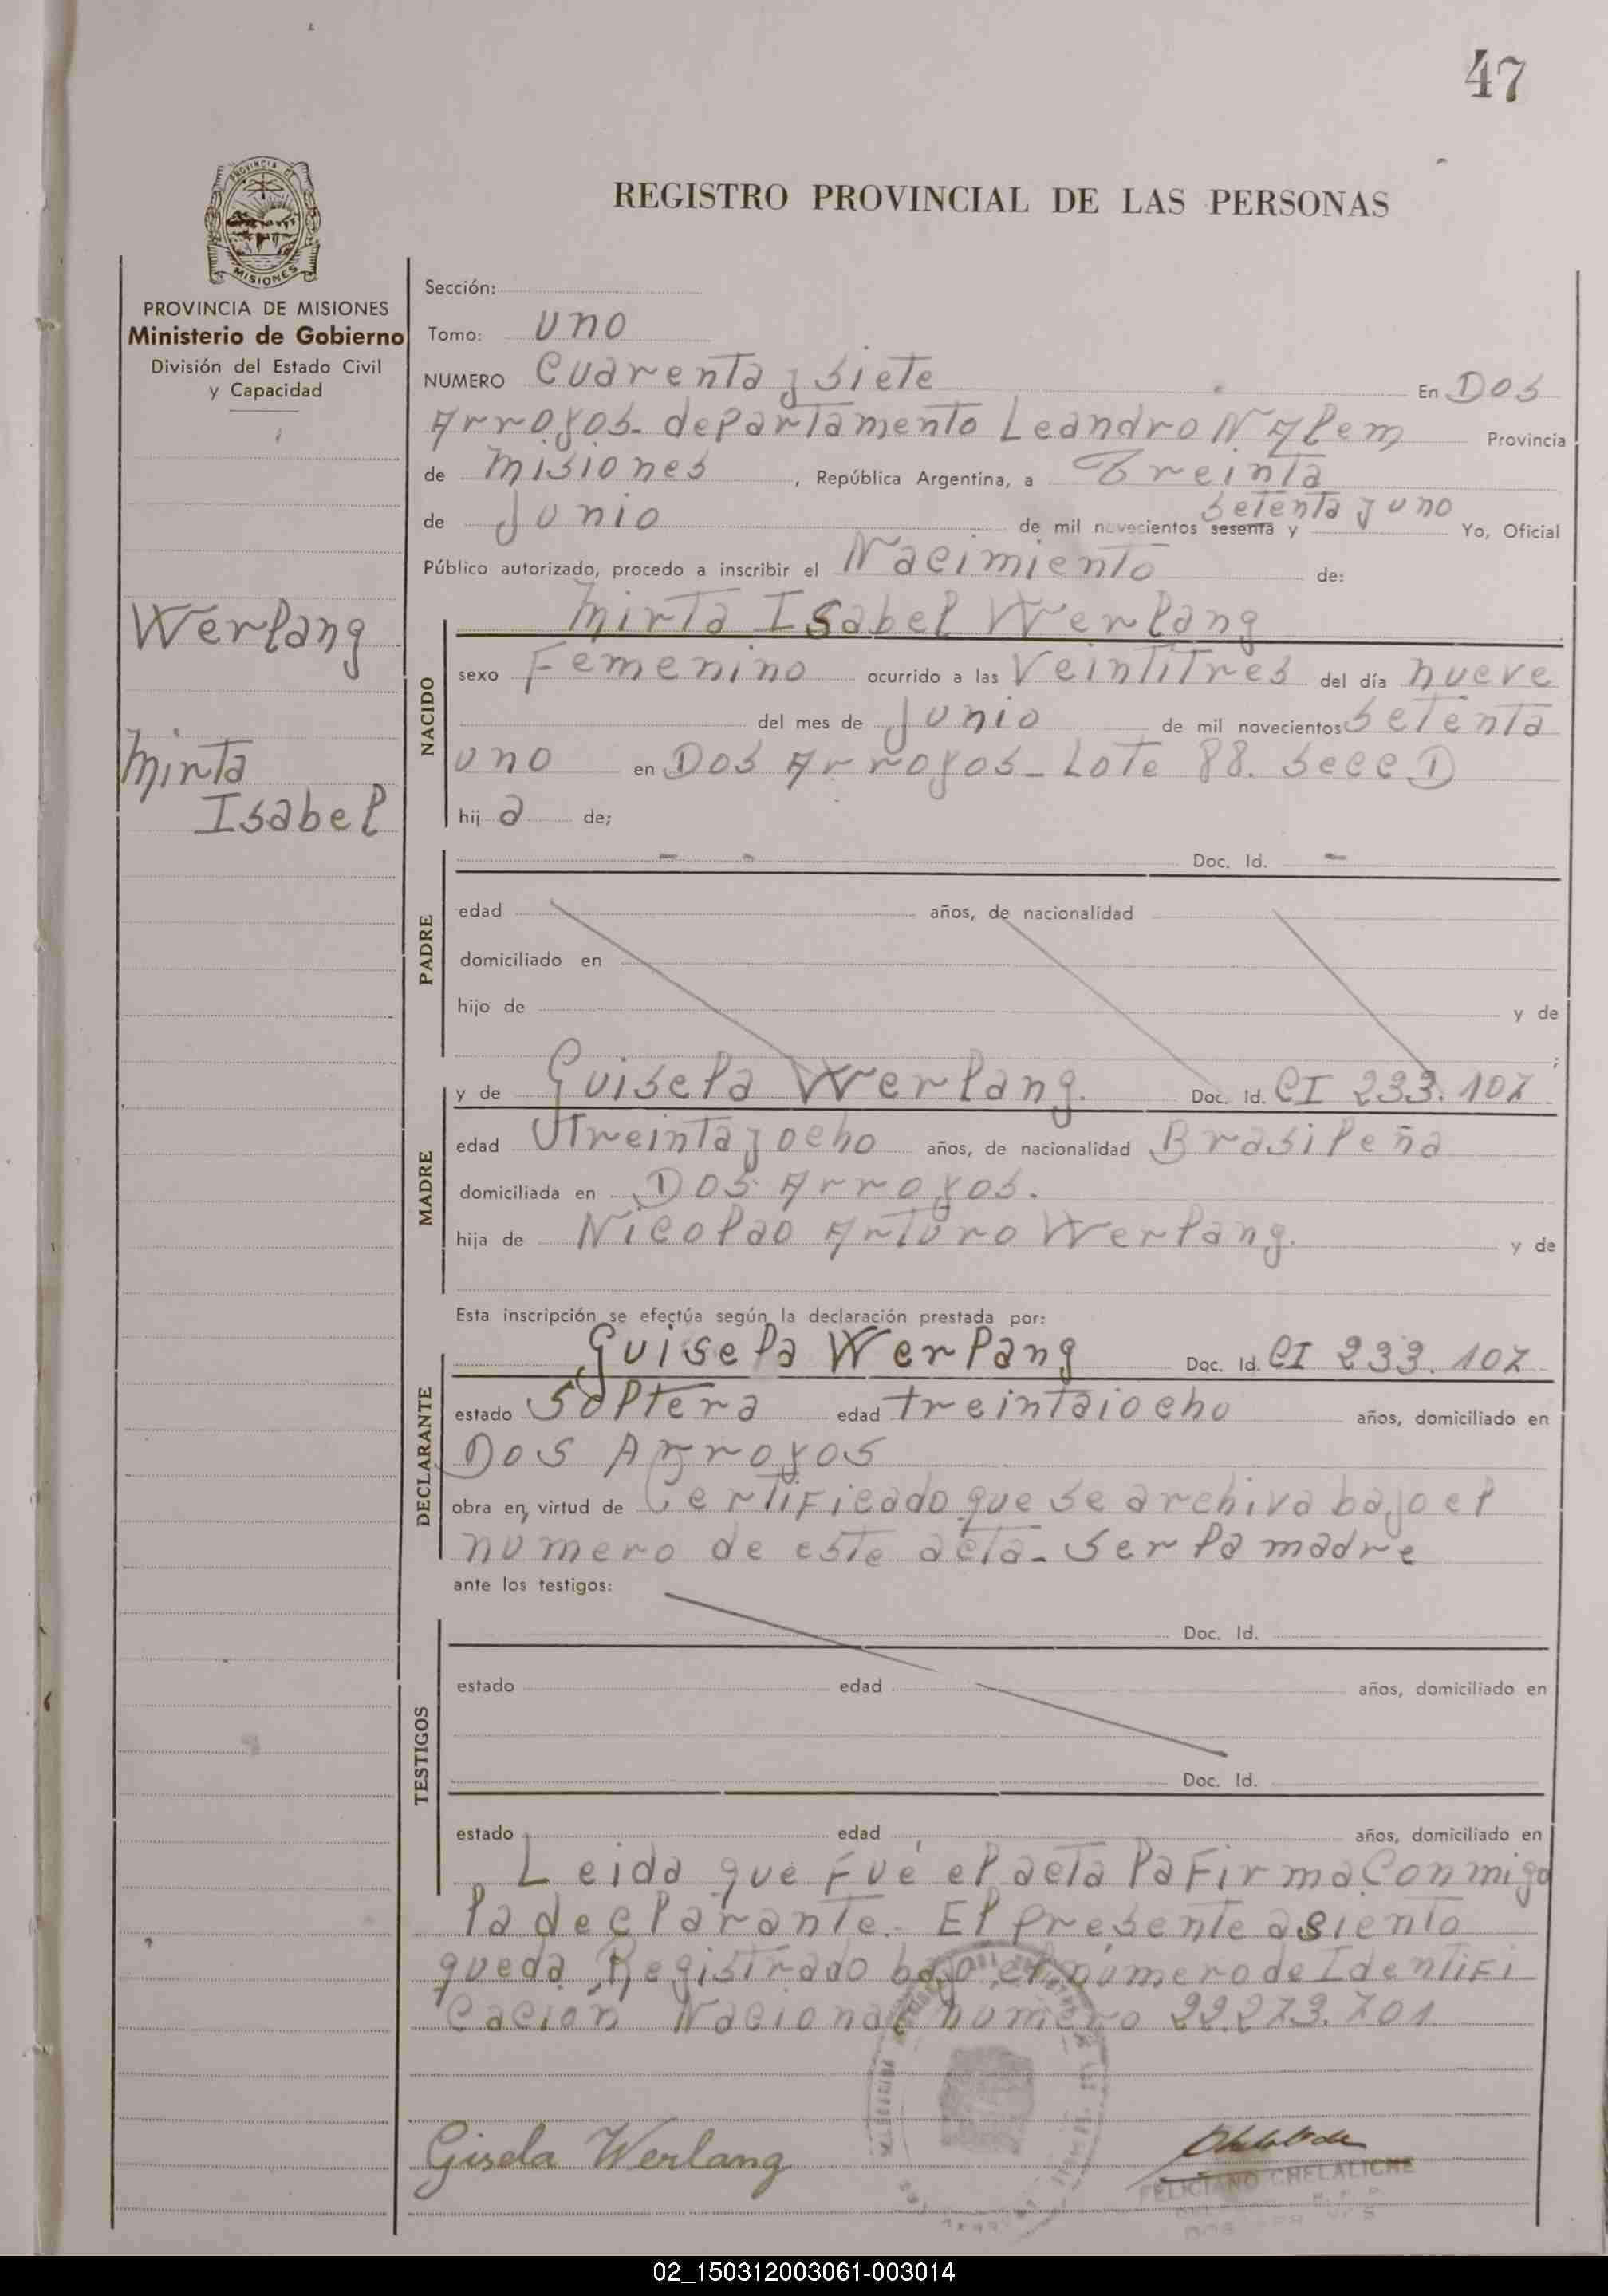 47
PROVINCIA DE
MISIONES
REGISTRO PROVINCIAL DE LAS PERSONAS
PROVINCIA DE MISIONES
Ministerio de Gobierno
División del Estado Civil
y Capacidad
Werlang
Mirta
Isabel
Sección:
Tomo: uno
NUMERO Cuarenta y siete En Dos
Arroyos- departamento Leandro N Alem Provincia
de Misiones, República Argentina, a Treinta
de Junio de mil novecientos sesenta y setenta y uno Yo, Oficial
Público autorizado, procedo a inscribir el Nacimiento de:
NACIDO
Mirta Isabel Werlang
sexo Femenino ocurrido a las Veintitres del día nueve
del mes de Junio de mil novecientos setenta
uno en Dos Arroyos- Lote 88. Secc D
hij a de;
PADRE
- - Doc. Id. -
edad años, de nacionalidad
domiciliado en
hijo de y de
;
MADRE
y de Guisela Werlang. Doc. Id. CI 233.107
edad treinta y ocho años, de nacionalidad Brasileña
domiciliada en Dos Arroyos.
hija de Nicolao Arturo Werlang. y de
Esta inscripción se efectúa según la declaración prestada por:
DECLARANTE
Guisela Werlang Doc. Id. CI 233.107
estado Soltera edad treintaiocho años, domiciliado en
Dos Arroyos
obra en virtud de Certificado que se archiva bajo el
numero de este acta- ser la madre
ante los testigos:
TESTIGOS
Doc. Id.
estado edad años, domiciliado en
Doc. Id.
estado edad años, domiciliado en
Leida que fué el acta la Firma Conmigo
la declarante. El presente asiento
queda Registrado bajo el numero de Identifi
cación Nacional numero 22.273.701
Gisela Werlang
FELICIANO CHELALICHE
02_150312003061-003014